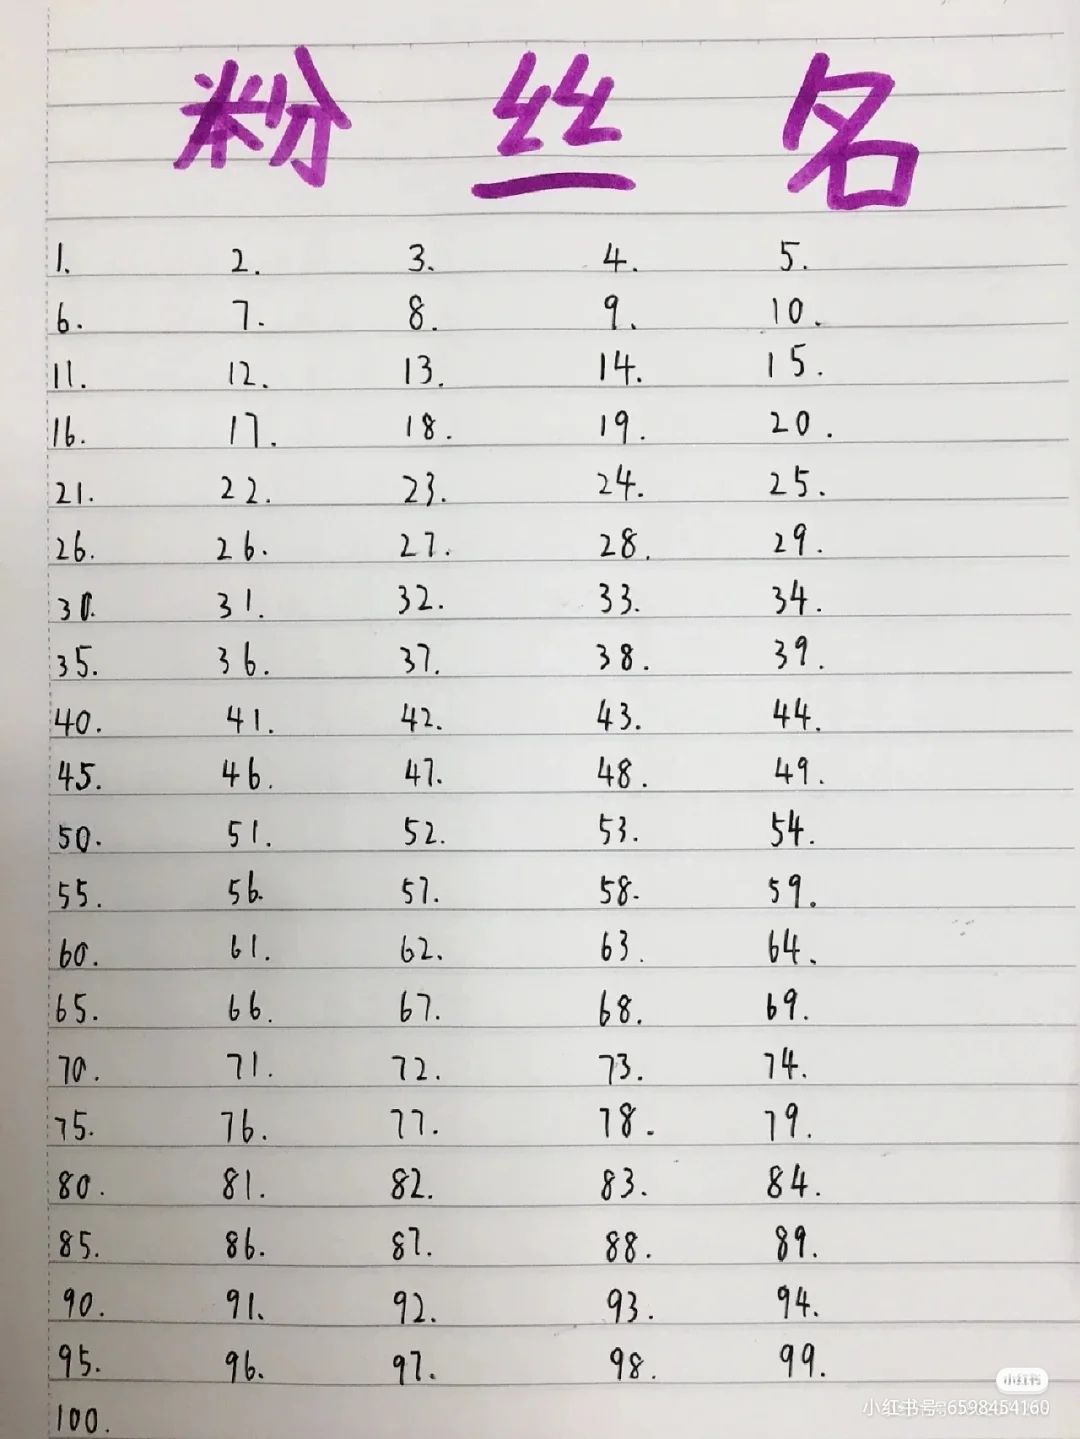 粉 丝 名
1. 2. 3. 4. 5.
6. 7. 8. 9. 10.
11. 12. 13. 14. 15.
16. 17. 18. 19. 20.
21. 22. 23. 24. 25.
26. 26. 27. 28. 29.
30. 31. 32. 33. 34.
35. 36. 37. 38. 39.
40. 41. 42. 43. 44.
45. 46. 47. 48. 49.
50. 51. 52. 53. 54.
55. 56. 57. 58. 59.
60. 61. 62. 63. 64.
65. 66. 67. 68. 69.
70. 71. 72. 73. 74.
75. 76. 77. 78. 79.
80. 81. 82. 83. 84.
85. 86. 87. 88. 89.
90. 91. 92. 93. 94.
95. 96. 97. 98. 99.
100.
小红书
小红书号:6598454160